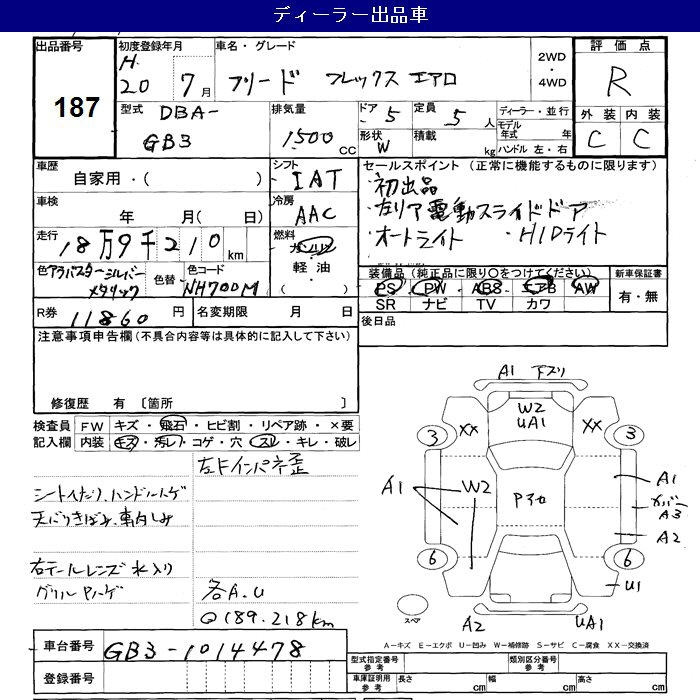 ディーラー出品車
出品番号 初度登録年月 車名・グレード 2WD 評価点
187 H 20 7月 フリード フレックス エアロ ・ R
4WD
型式 DBA- 排気量 ドア 5 定員 5人 ディーラー・並行 外装 内装
GB3 1500cc 形状 W 積載 kg モデル年式 年 C C
ハンドル 左・右
車歴 自家用・( ) シフト IAT セールスポイント(正常に機能するものに限ります)
初出品
車検 年 月( 日) 冷房 AAC 左リア電動スライドドア
オートライト ・HIDライト
走行 18万9千210km 燃料 ガソリン
軽油・( )
色 アラバスターシルバーメタリック 色替 色コード NH700M 装備品(純正品に限り○をつけてください) 新車保証書
PS PW ABS エアB AW 有・無
SR ナビ TV カワ
R券 11860円 名変期限 月 日 後日品
注意事項申告欄(不具合内容等は具体的に記入して下さい)
修復歴 有 〔箇所 〕
検査員 FW キズ・飛石・ヒビ割・リペア跡・×要
記入欄 内装 キズ・汚レ・コゲ・穴・スレ・キレ・破レ
左Fインパネ歪
シートへたり、ハンドルハゲ
天バリきばみ、車内しみ
右テールレンズ水入り
グリルPハゲ
各A.U
189.218km
A1 下スリ
W2
UA1
XX XX
3 3
A1 W2 A1
A3
A2
6 6
U1
スペア
A2 UA1
A-キズ E-エクボ U-凹み W-補修跡 S-サビ C-腐食 XX-交換済
車台番号 GB3-1014478
登録番号
型式指定番号 参考 類別区分番号 参考
車庫証明用 参考 長さ cm 幅 cm 高さ cm